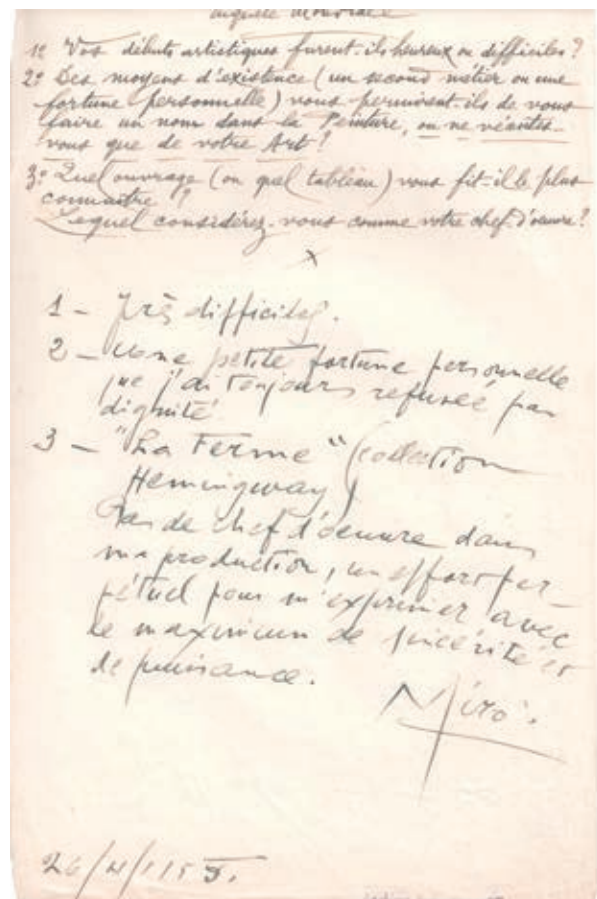 enquête mondiale
1º Vos débuts artistiques furent-ils heureux ou difficiles?
2º Des moyens d'existence (un second métier ou une
fortune personnelle) vous permirent-ils de vous
faire un nom dans la Peinture, ou ne vécûtes-
vous que de votre Art?
3º Quel ouvrage (ou quel tableau) vous fit-il le plus
connaître?
Lequel considérez-vous comme votre chef-d'œuvre?
x
1 - Très difficiles.
2 - Une petite fortune personnelle
que j'ai toujours refusée par
dignité.
3 - "La Ferme" (collection
Hemingway)
Pas de chef d'œuvre dans
ma production, un effort per-
pétuel pour m'exprimer avec
le maximum de sincérité et
de puissance.
Miró.